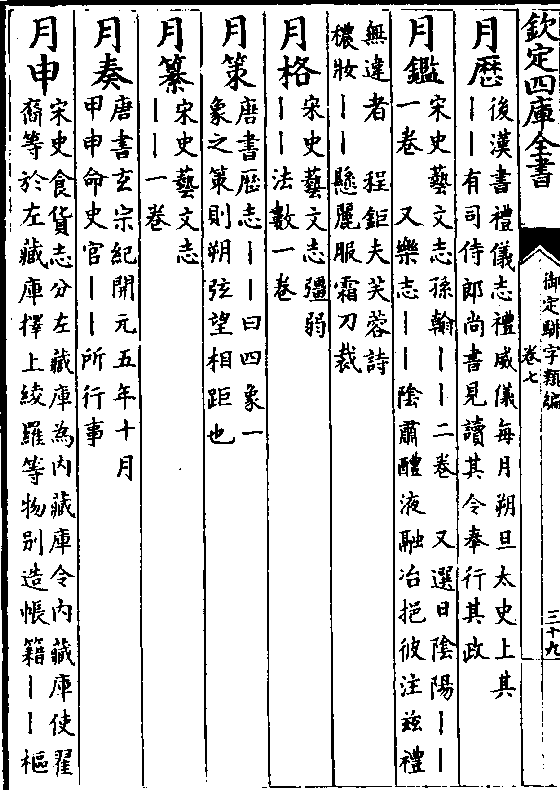 欽定四庫全書
御定駢字類編
卷七
三十九
月歴
後漢書禮儀志禮威儀每月朔旦太史上其
丨丨有司侍郎尚書見讀其令奉行其政
月鑑
宋史藝文志孫翰丨丨二卷 又選日陰陽丨丨
一卷 又樂志丨丨陰肅醴液融冶挹彼注兹禮
無違者 程鉅夫芙蓉詩
穠妝丨丨懸麗服霜刀裁
月格
宋史藝文志彊弱
丨丨法數一卷
月策
唐書歴志丨丨曰四象一
象之策則朔弦望相距也
月纂
宋史藝文志
丨丨一卷
月奏
唐書玄宗紀開元五年十月
甲申命史官丨丨所行事
月申
宋史食貨志分左藏庫為内藏庫令内藏庫使翟
裔等於左藏庫擇上綾羅等物别造帳籍丨丨樞